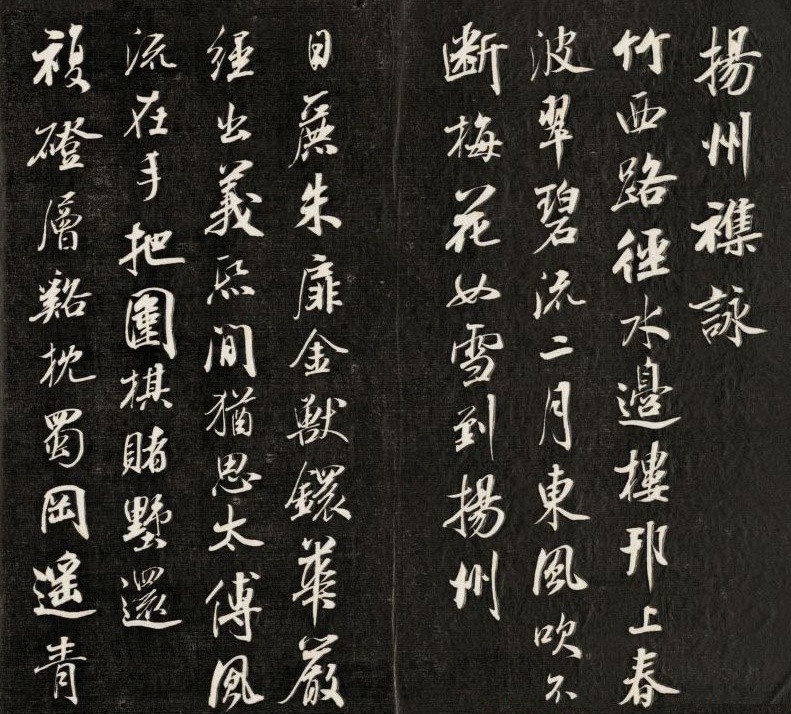 揚州襍詠
竹西路徑水邊樓邗上春
波翠碧流二月東風吹不
断梅花如雪到揚州
日麗朱扉金獸鐶華嚴
經出義熙間猶思太傅風
流在手把圍棋賭墅還
複磴層谿枕蜀岡遥青